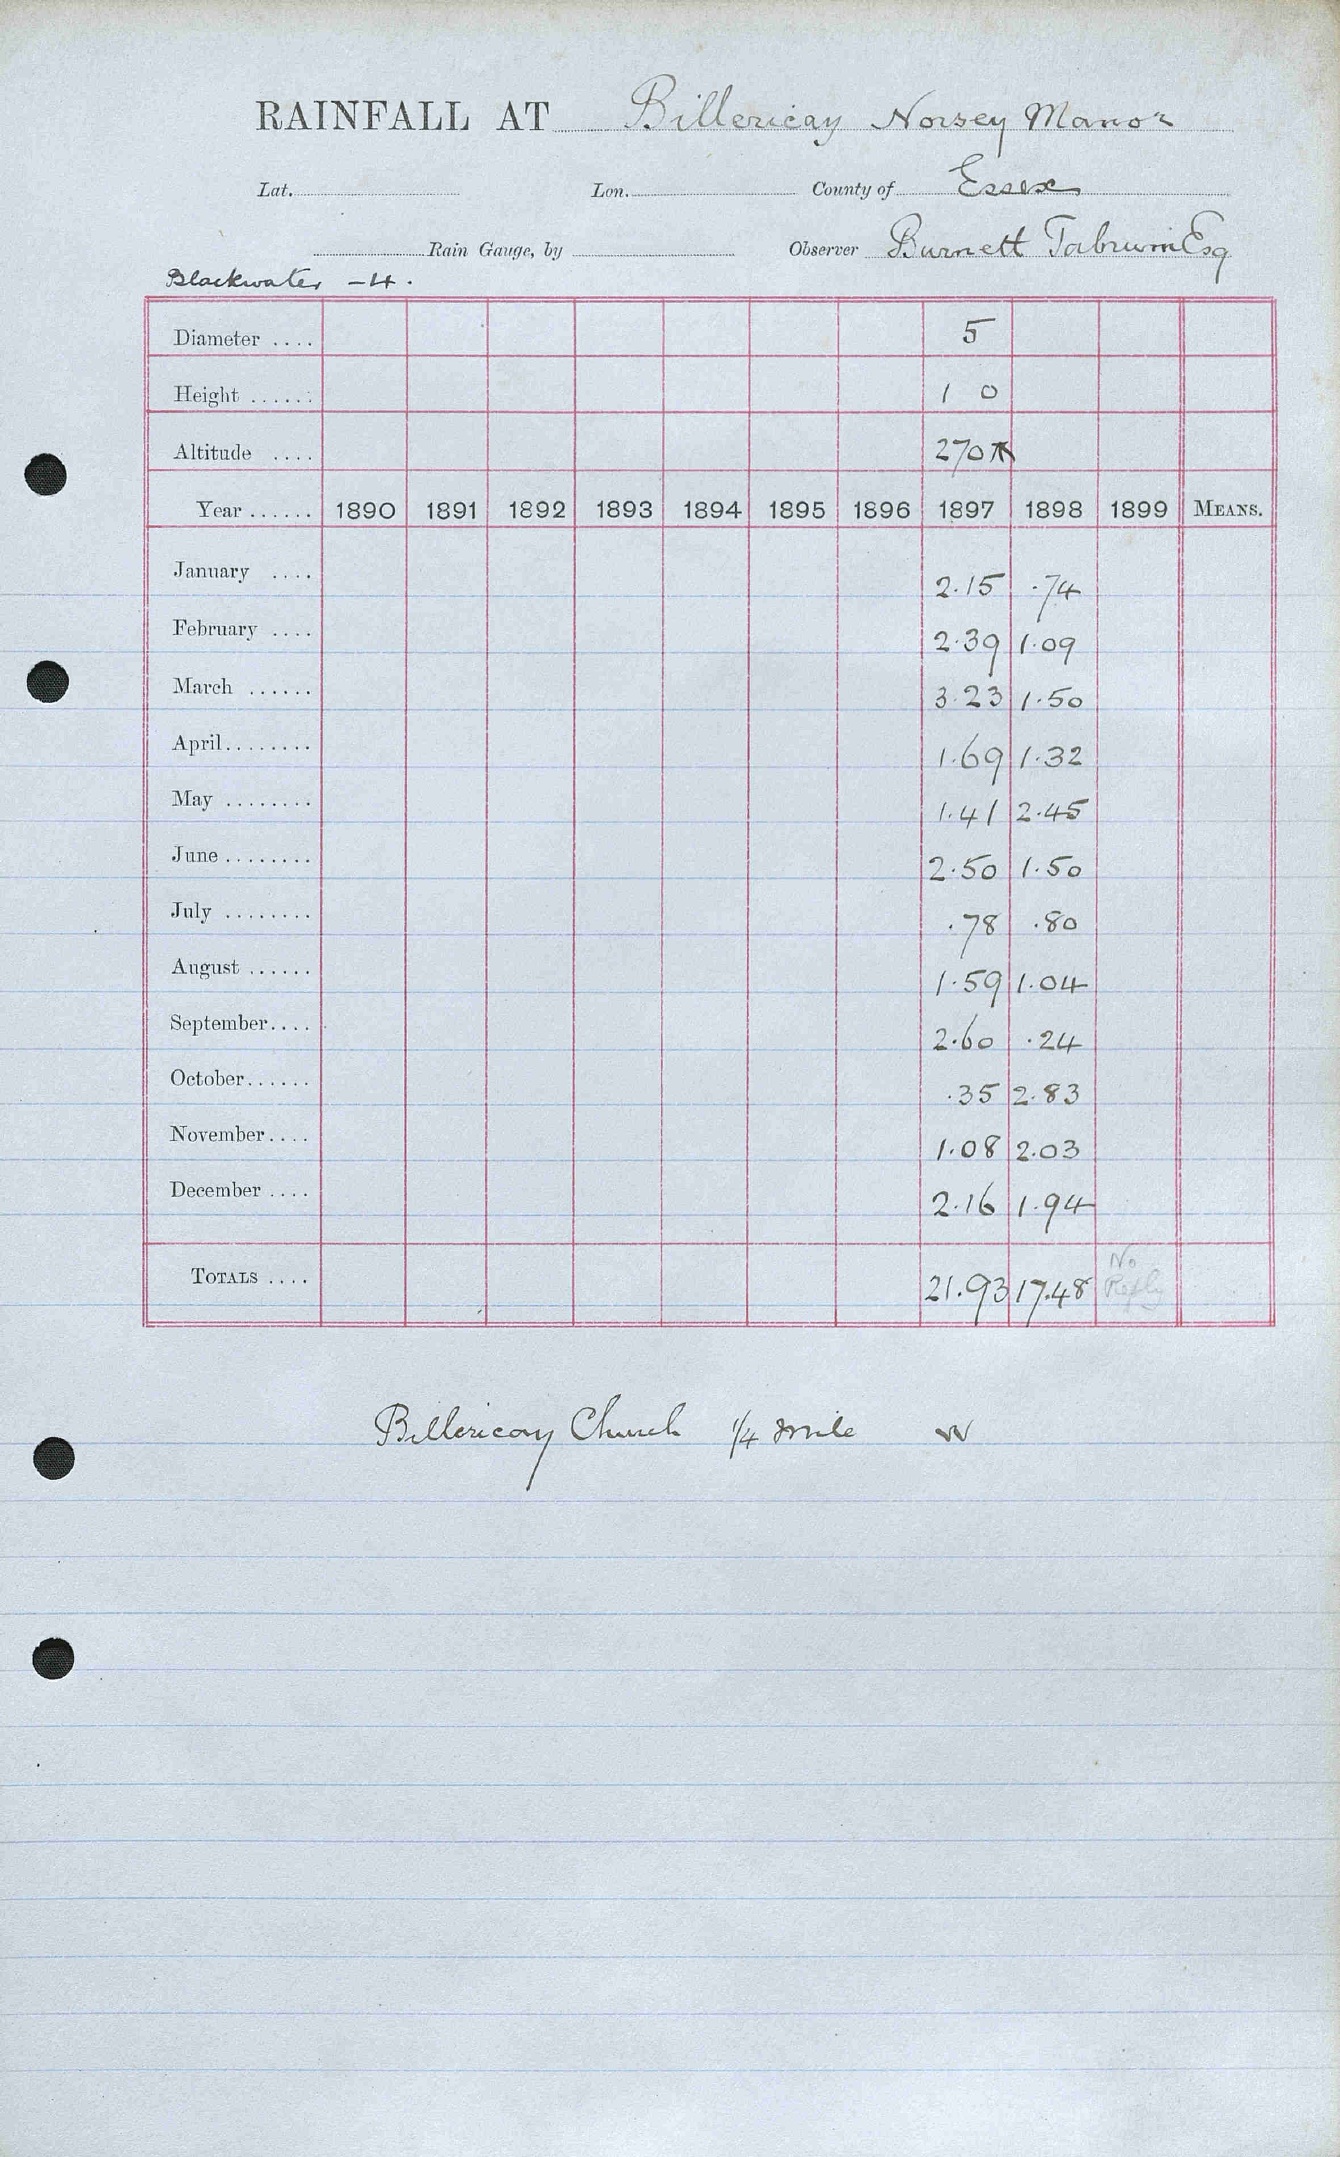 RAINFALL AT Billericay Norsey Manor
Lat. Lon. County of Essex
Rain Gauge, by Observer Burnett Tabrum Esq
Blackwater -4.
Diameter .... 5
Height ...... 1 0
Altitude .... 270
Year ...... 1890 1891 1892 1893 1894 1895 1896 1897 1898 1899 MEANS.
January .... 2.15 .74
February .... 2.39 1.09
March ...... 3.23 1.50
April ........ 1.69 1.32
May ........ 1.41 2.45
June ........ 2.50 1.50
July ........ .78 .80
August ...... 1.59 1.04
September.... 2.60 .24
October ...... .35 2.83
November .... 1.08 2.03
December .... 2.16 1.94
TOTALS .... 21.93 17.48 No Reply
Billericay Church 1/4 mile W